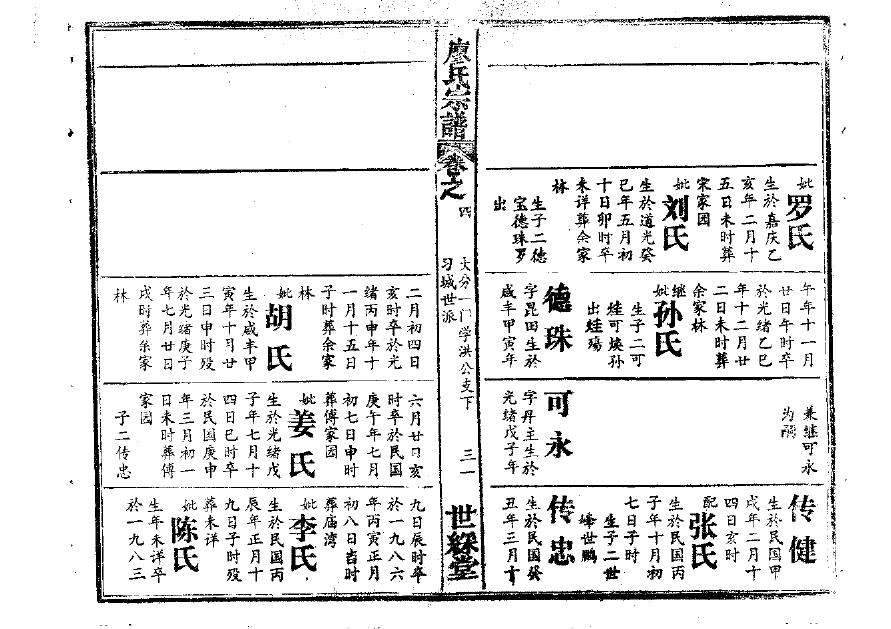 妣罗氏
生於嘉庆乙
亥年二月十
五日未时葬
宋家园
妣刘氏
生於道光癸
巳年五月初
十日卯时卒
未详葬余家
林
生子二德
宝德珠罗
出
午年十一月
廿日午时卒
於光绪乙巳
年十二月廿
二日未时葬
余家林
继妣孙氏
生子二可
烓可焕孙
出烓殇
德珠
字崑田生於
咸丰甲寅年
兼继可永
为嗣
可永
字丹主生於
光绪戊子年
传健
生於民国甲
戌年二月十
四日亥时
配张氏
生於民国丙
子年十月初
七日子时
生子二世
峰世鹏
传忠
生於民国癸
丑年三月十
廖氏宗谱
卷之四
大分一门学洪公支下
习城世派
三一
世綵堂
二月初四日
亥时卒於光
绪丙申年十
一月十五日
子时葬余家
林
妣胡氏
生於咸丰甲
寅年十月廿
三日申时殁
於光绪庚子
年七月廿日
戌时葬余家
林
六月廿日亥
时卒於民国
庚午年七月
初七日申时
葬傅家园
妣姜氏
生於光绪戊
子年七月十
四日巳时卒
於民国庚申
年三月初一
日未时葬傅
家园
子二传忠
九日辰时卒
於一九八六
年丙寅正月
初八日酉时
葬庙湾
妣李氏
生於民国丙
辰年正月十
九日子时殁
葬未详
妣陈氏
生年未详卒
於一九八三